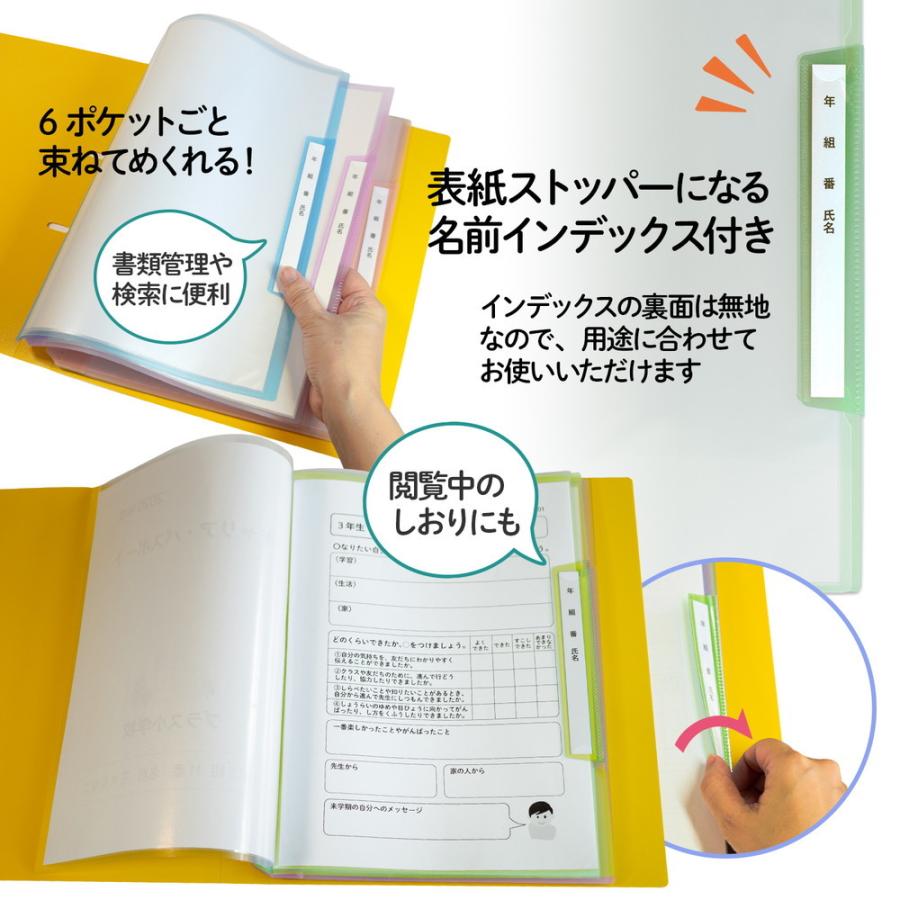 6ポケットごと
束ねてめくれる！
書類管理や
検索に便利
年 組 番 氏名
年 組 番 氏名
年 組 番 氏名
表紙ストッパーになる
名前インデックス付き
インデックスの裏面は無地
なので、用途に合わせて
お使いいただけます
年 組 番 氏名
閲覧中の
しおりにも
3年生
○なりたい自
（学習）
（生活）
（家）
どのくらいできたか、○をつけましょう。
よく
できた
できた
すこし
できた
あまり
できな
かった
①自分の気持ちを、友だちにわかりやすく
伝えることができましたか。
②クラスや友だちのために、進んで行どう
したり、協力したりできましたか。
③しらべたいことや知りたいことがあるとき、
自分から進んで先生にしつもんできましたか。
④しょうらいのゆめや目ひょうに向かってがん
ばったり、し方をくふうしたりできましたか。
一番楽しかったことやがんばったこと
先生から
家の人から
来学期の自分へのメッセージ
年 組 番 氏名
年 組 番 氏名